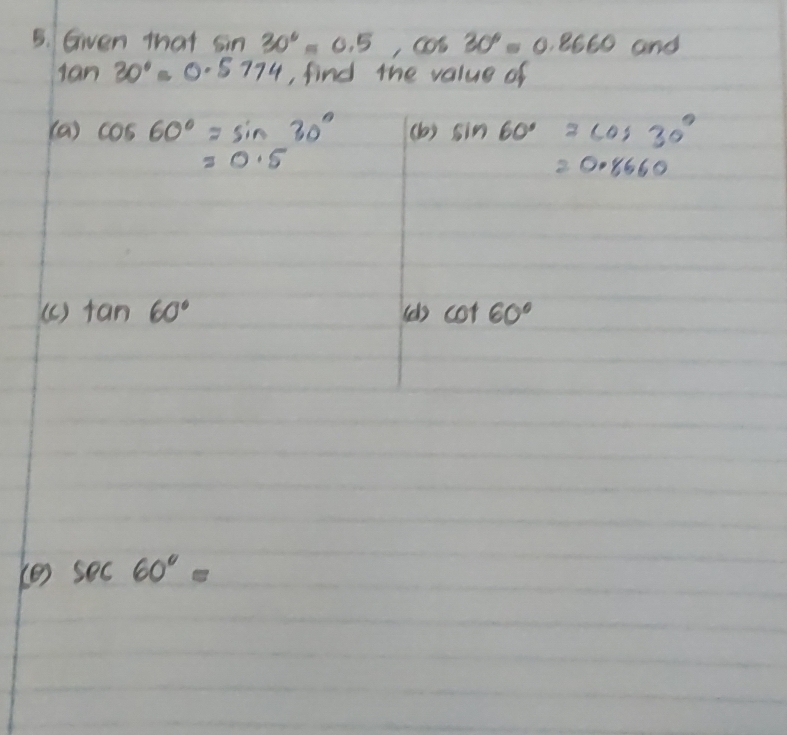 5. Given that sin 30° = 0.5, cos 30° = 0.8660 and
tan 30° = 0.5774, find the value of
(a) cos 60° = sin 30°
= 0.5
(b) sin 60° = cos 30°
= 0.8660
(c) tan 60°
(d) cot 60°
(e) sec 60° =